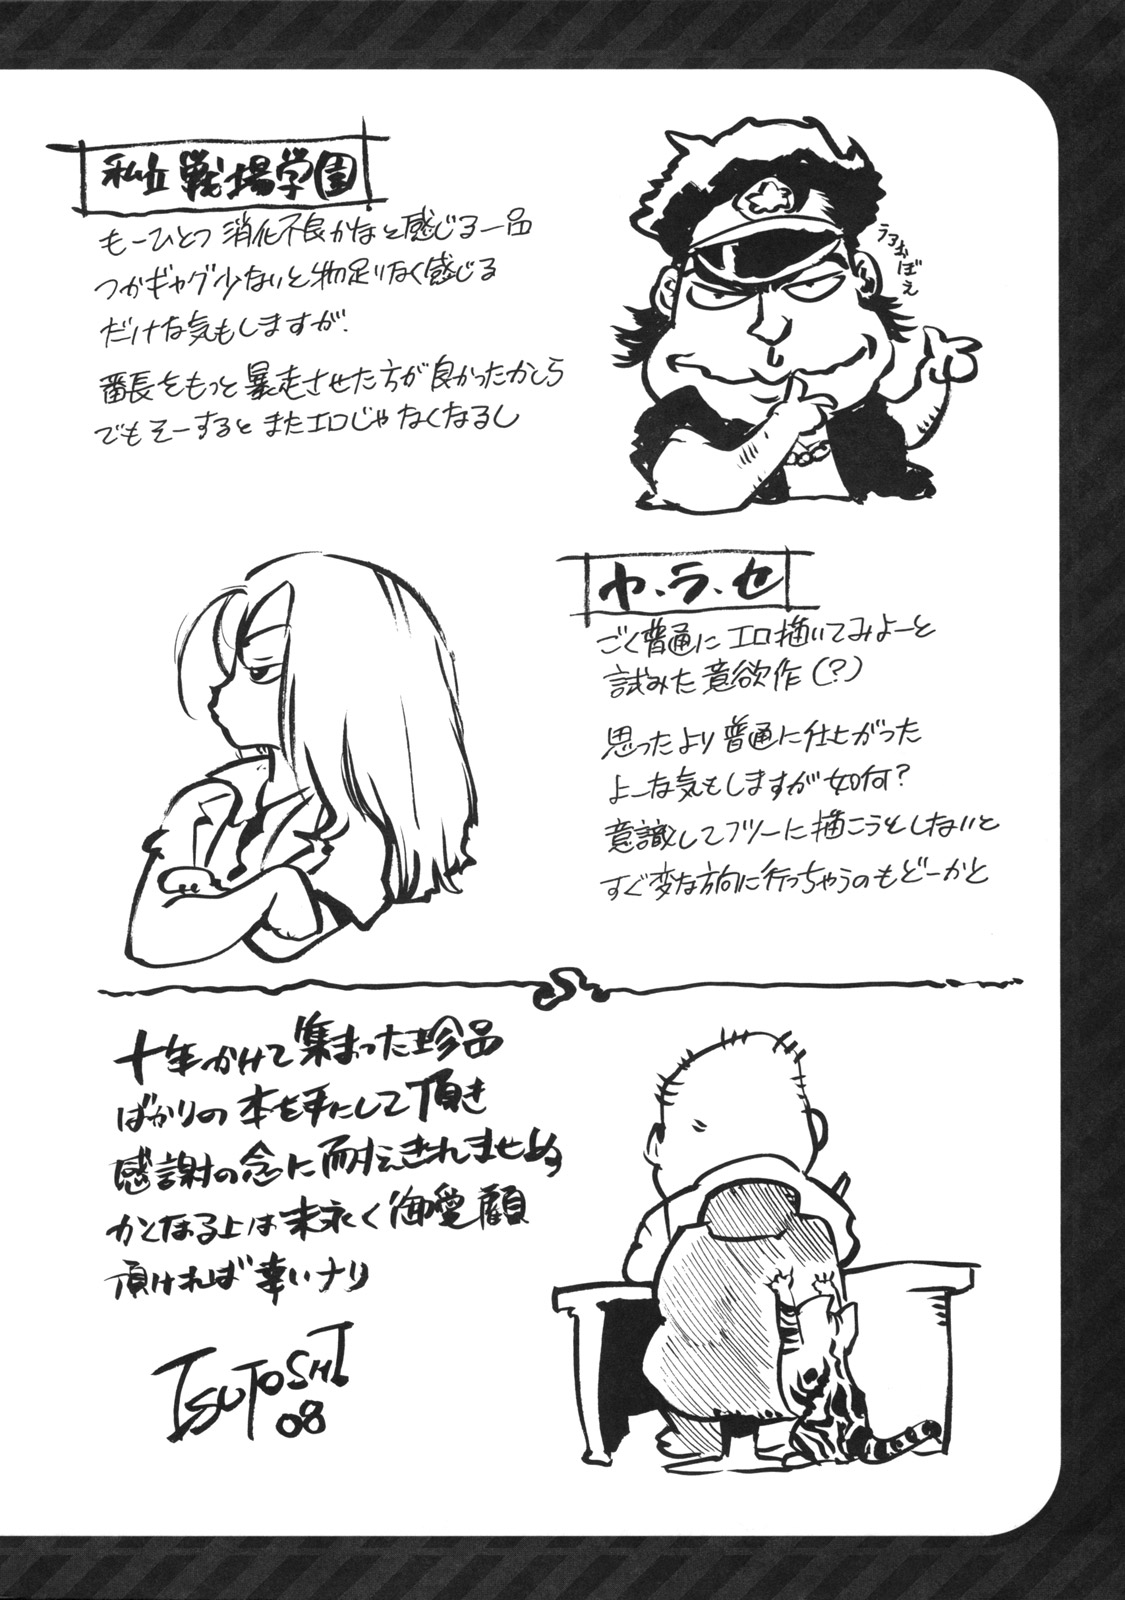 私立戦場学園
もーひとつ消化不良かなと感じる一品
つかギャグ少ないと物足りなく感じる
だけな気もしますが、
番長をもっと暴走させた方が良かったかしら
でもそーするとまたエロじゃなくなるし
ラヲおぼえ
ヤ・ラ・セ
ごく普通にエロ描いてみよーと
試みた意欲作(?)
思ったより普通に仕上がった
よーな気もしますが如何?
意識してフツーに描こうとしないと
すぐ変な方向に行っちゃうのもどーかと
十年かけて集まった珍品
ばかりの本を手にして頂き
感謝の念に耐えきれませぬ
かくなる上は末永く御愛顧
頂ければ幸いナリ
TSUTOSHI
08